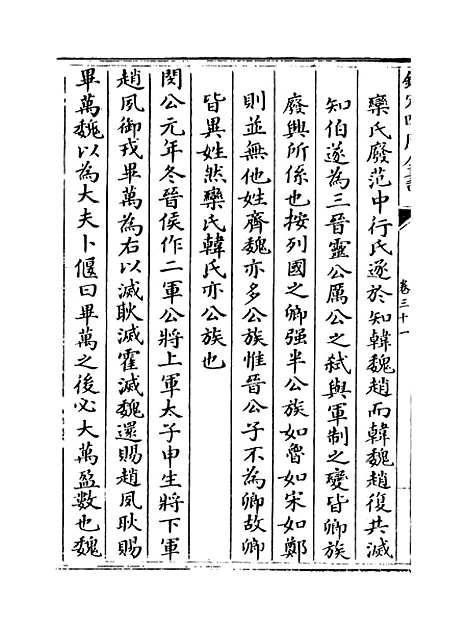 欽定四庫全書
卷三十一
欒氏廢范中行氏遂於知韓魏趙而韓魏趙復共滅
知伯遂為三晉靈公厲公之弑與軍制之變皆卿族
廢興所係也按列國之卿强半公族如魯如宋如鄭
則並無他姓齊魏亦多公族惟晉公子不為卿故卿
皆異姓然欒氏韓氏亦公族也
閔公元年冬晉侯作二軍公將上軍太子申生將下軍
趙夙御戎畢萬為右以滅耿滅霍滅魏還賜趙夙耿賜
畢萬魏以為大夫卜偃曰畢萬之後必大萬盈數也魏